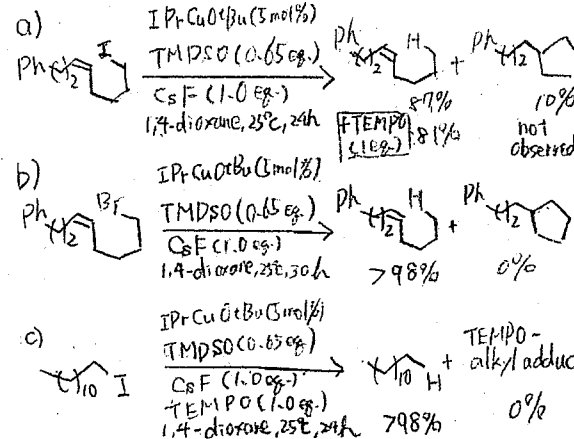 a)
IPrCuOtBu (5 mol%)
I
Ph ( )2
TMDSO (0.65 eq.)
CsF (1.0 eq.)
1,4-dioxane, 25℃, 24h
Ph ( )2 H + Ph ( )2
87% 10%
+TEMPO (1eq.) 81% not observed
b)
IPrCuOtBu (5 mol%)
Br
Ph ( )2
TMDSO (0.65 eq.)
CsF (1.0 eq.)
1,4-dioxane, 25℃, 30h
Ph ( )2 H + Ph ( )2
>98% 0%
c)
IPrCuOtBu (5 mol%)
TMDSO (0.65 eq.)
( )10 I
CsF (1.0 eq.)
TEMPO (1.0 eq.)
1,4-dioxane, 25℃, 24h
( )10 H + TEMPO-alkyl adduc
>98% 0%